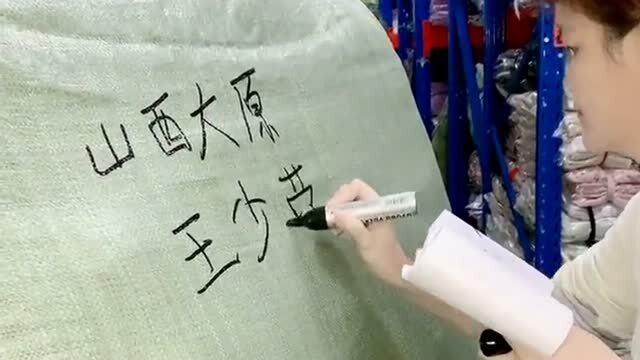 山西大原
王少